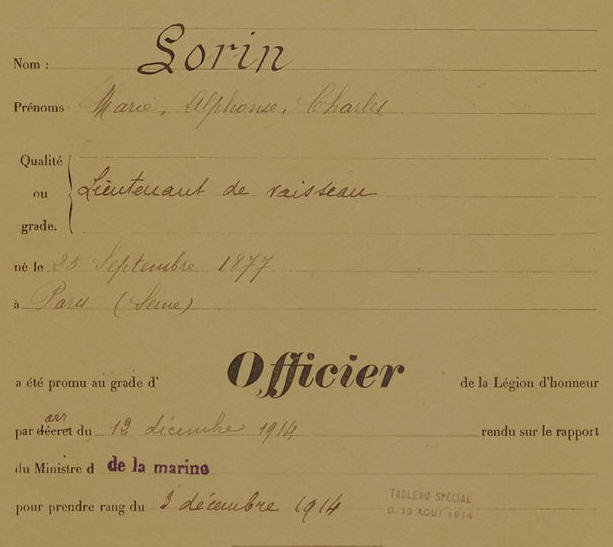 Nom : Lorin
Prénoms Marie, Alphonse, Charles
Qualité
ou Lieutenant de vaisseau
grade.
né le 25 Septembre 1877
à Paris (Seine)
a été promu au grade d' Officier de la Légion d'honneur
arr
par décret du 12 décembre 1914 rendu sur le rapport
du Ministre d de la marine
pour prendre rang du décembre 1914
TABLEAU SPÉCIAL
AOUT 1914